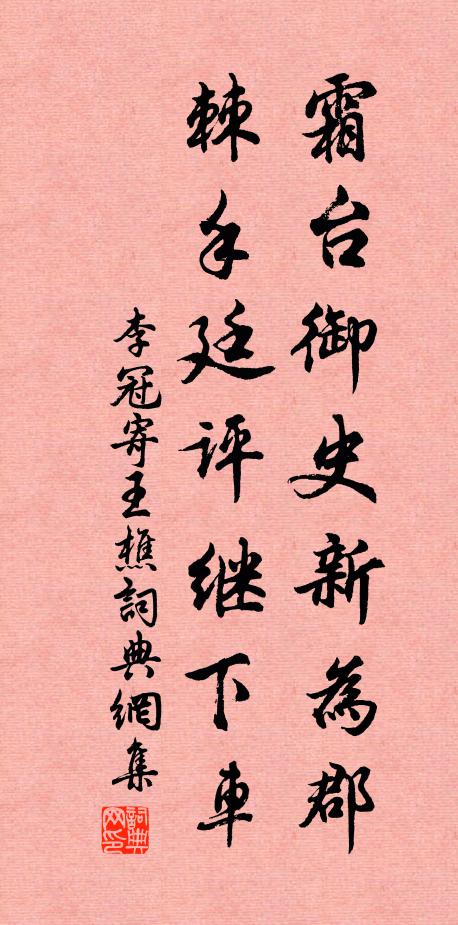 霜台御史新為郡
棘手廷评继下車
李冠寄王樵詞典網集
詞典网印